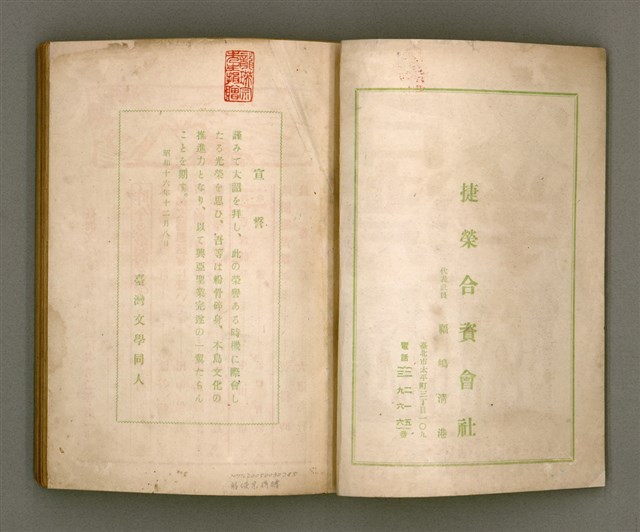 捷榮合資會社
代表社員 顏鳴清港
臺北市太平町三丁目一〇九
電話
二二一五
三九六六
番
宣誓
謹みて大詔を拜し、此の榮譽ある時機に際會し
たる光榮を思ひ、吾等は粉骨碎身、本島文化の
推進力となり、以て興亞聖業完遂の一翼たらん
ことを期す。
昭和十六年十二月八日
臺灣文學同人